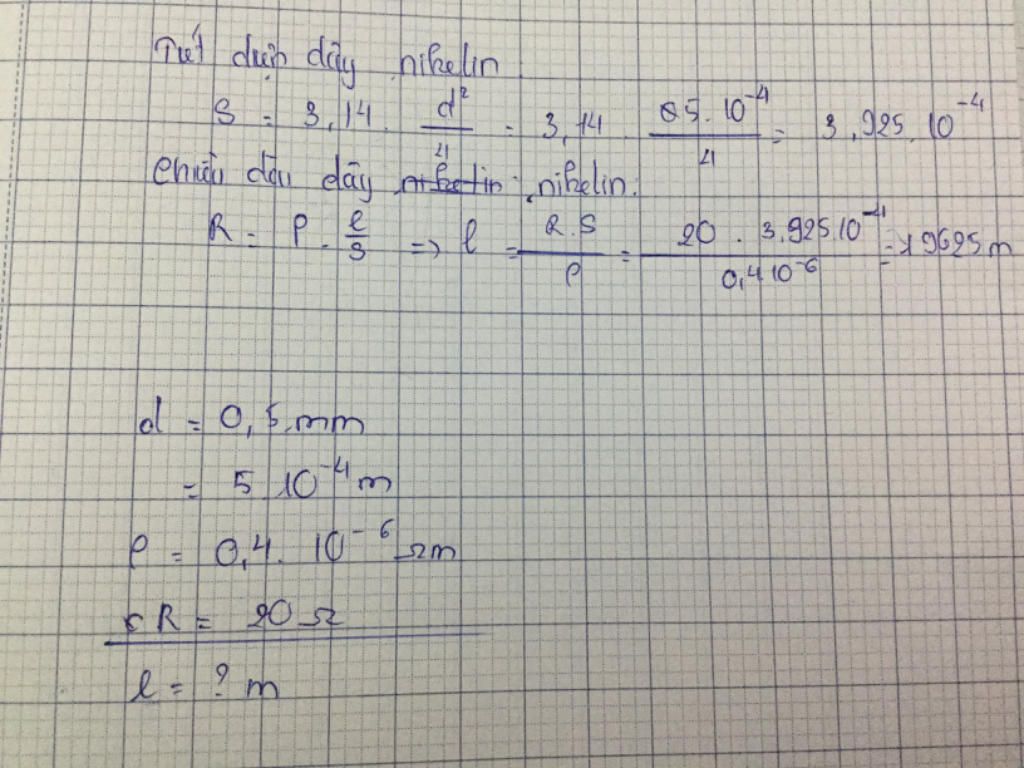 Tiết diện dây nikelin
S = 3,14 . d²/4 = 3,14 . 5.10⁻⁴/4 = 3,925.10⁻⁴
Chiều dài dây nikelin nikelin:
R = ρ . l/S => l = R.S/ρ = 20 . 3,925.10⁻⁴/0,4 10⁻⁶ = 19625 m
d = 0,5 mm
= 5 10⁻⁴ m
ρ = 0,4. 10⁻⁶ Ωm
R = 20 Ω
l = ? m